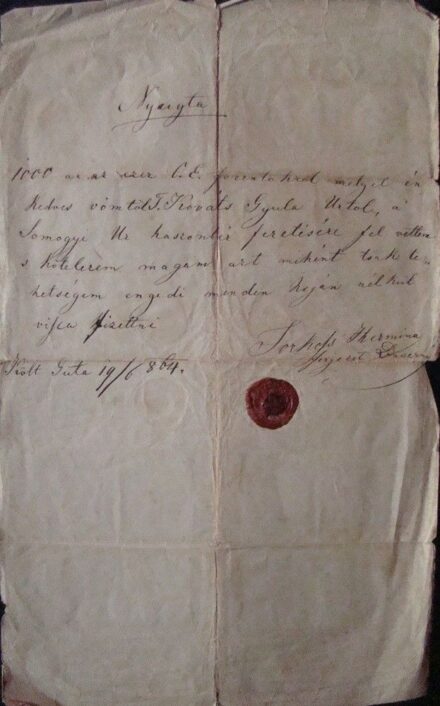 Nyugta
1000 az az ezer C.E. forintokrol melyel én
kedves vömtöl T. Kováts Gyula Urtol, a
Somogyi Ur haszonbér fizetésére fel vettem
s kötelezem magam azt mihént tsak te-
hetségem engedi minden hoján nélkul
visza fizettni
Thermina
Kelt Guta 19/6 864.